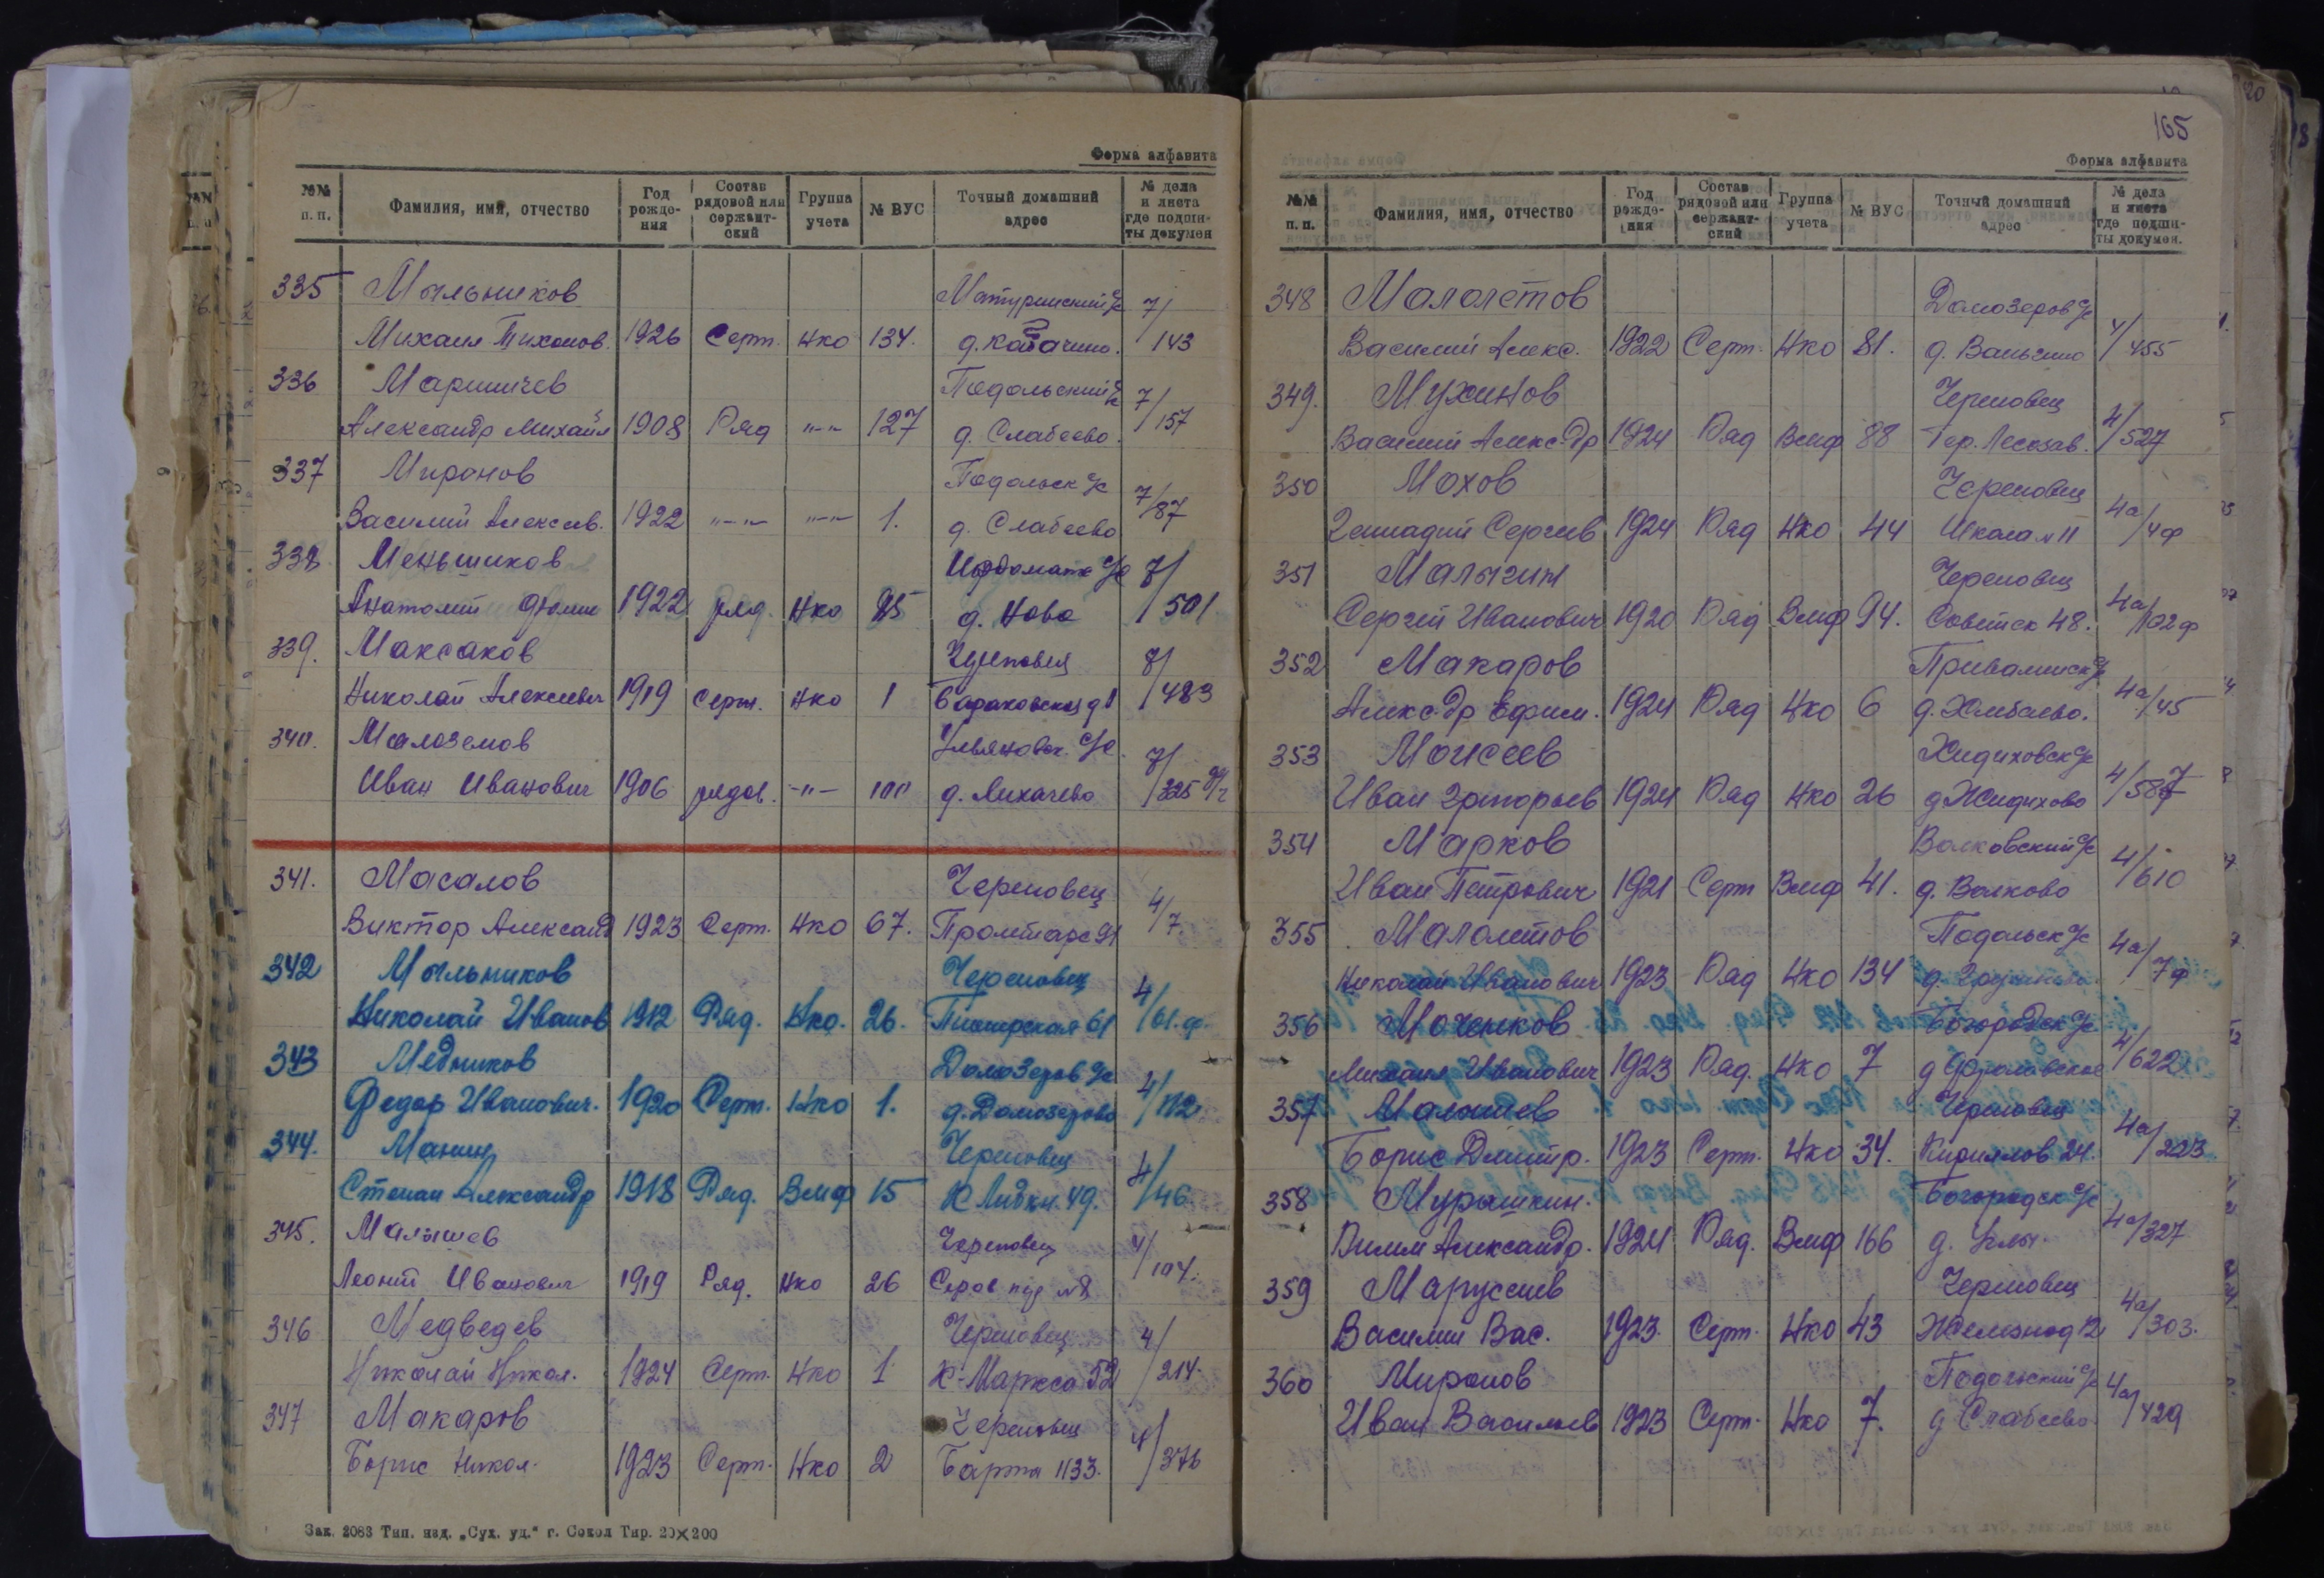 Форма алфавита
№№ п. п. | Фамилия, имя, отчество | Год рожде-ния | Состав рядовой или сержант-ский | Группа учета | № ВУС | Точный домашний адрес | № дела и листа где подши-ты докумен
335 Мыльников Матуринский с/с 7/
Михаил Тихонов. 1926 Серт. Нко 134. д. 143
336 Маршичев Подольский с/с 7/
Александр Михайл 1908 Ряд "-" 127 д. Слабеево. 157
337 Миронов Подольск с/с 7/
Василий Алексев. 1922 "-" "-" 1. д. Слабеево 87
338 Меньшиков Ирдоматк с/с 8/
Анатолий 1922 ряд. Нко 85 д. Ново 501
339. Максаков Череповец 8/
Николай Алексеевич 1919 серж. Нко 1 483
340. Малоземов Ульяновск. с/с. 8/
Иван Иванович 1906 рядов. -"- 100 д. Лихачево 325
341. Масалов Череповец 4/
Виктор Александ 1923 Серт. Нко 67. Пролетарс 91 7.
342 Мыльников Череповец 4/
Николай Иванов 1912 Ряд. Нко. 26. Пионерская 61 61.ф.
343 Медников Домозеров с/с 4/
Федор Иванович. 1920 Серт. Нко 1. д. Домозерово 112
344. Манин Череповец 4/
Степан Александр 1918 Ряд. Вмф 15 К Либкн. 49. 46
345. Малышев Череповец 4/
Леонид Иванович 1919 Ряд. Нко 26 104.
346 Медведев Череповец 4/
Николай Никол. 1924 Серт. Нко 1 К-Маркса 52 214.
347 Макаров Череповец 4/
Борис Никол. 1923 Серт. Нко 2 376
Зак. 2083 Тип. изд. „Сух. уд.“ г. Сокол Тир. 20×200
165
Форма алфавита
№№ п. п. | Фамилия, имя, отчество | Год рожде-ния | Состав рядовой или сержант-ский | Группа учета | № ВУС | Точный домашний адрес | № дела и листа где подши-ты докумен.
348 Малолетов Домозеров с/с 4/
Василий Алекс. 1922 Серт. Нко 81. д. Ваньгино 455
349. Мухинов Череповец 4/
Василий Алекс-др 1924 Ряд Вмф 88 Тер. Лесозав. 527
350 Мохов Череповец 4а/
Геннадий Сергеев 1924 Ряд Нко 44 Школа №11 4ф
351 Малыгин Череповец 4а/
Сергей Иванович 1920 Ряд Вмф 94. Советск 48. 102ф
352 Макаров 4а/
Алекс-др Ефим. 1924 Ряд Нко 6 д. Хлебаево. 45
353 Моисеев Жидиховск с/с 4/
Иван Григорьев 1924 Ряд Нко 26 д Жидихово 587
354 Марков Волковский с/с 4/
Иван Петрович 1921 Серт Вмф 41. д. Волково 610
355 Малолетов Подольск с/с 4а/
Николай Иванович 1923 Ряд Нко 134 д. 7ф
356 Моченков Богородск с/с 4/
Михаил Иванович 1923 Ряд. Нко 7 д Фроловское 622
357 Малышев Череповец 4а/
Борис Дмитр. 1923 Серт. Нко 34. Кириллов 24. 203
358 Мурашкин. Богородск с/с 4а/
Вилим Александр. 1924 Ряд. Вмф 166 д. 327
359 Маруссиев Череповец 4а/
Василий Вас. 1923. Серт. Нко 43 Железнод 12 303.
360 Миронов Подольский с/с 4а/
Иван Васильев 1923 Серт. Нко 7. д Слабеево 429